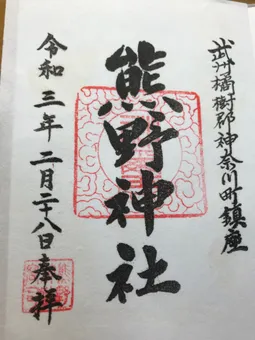 武州橘樹郡神奈川町鎮座
熊野神社
令和三年二月二十八日奉拝